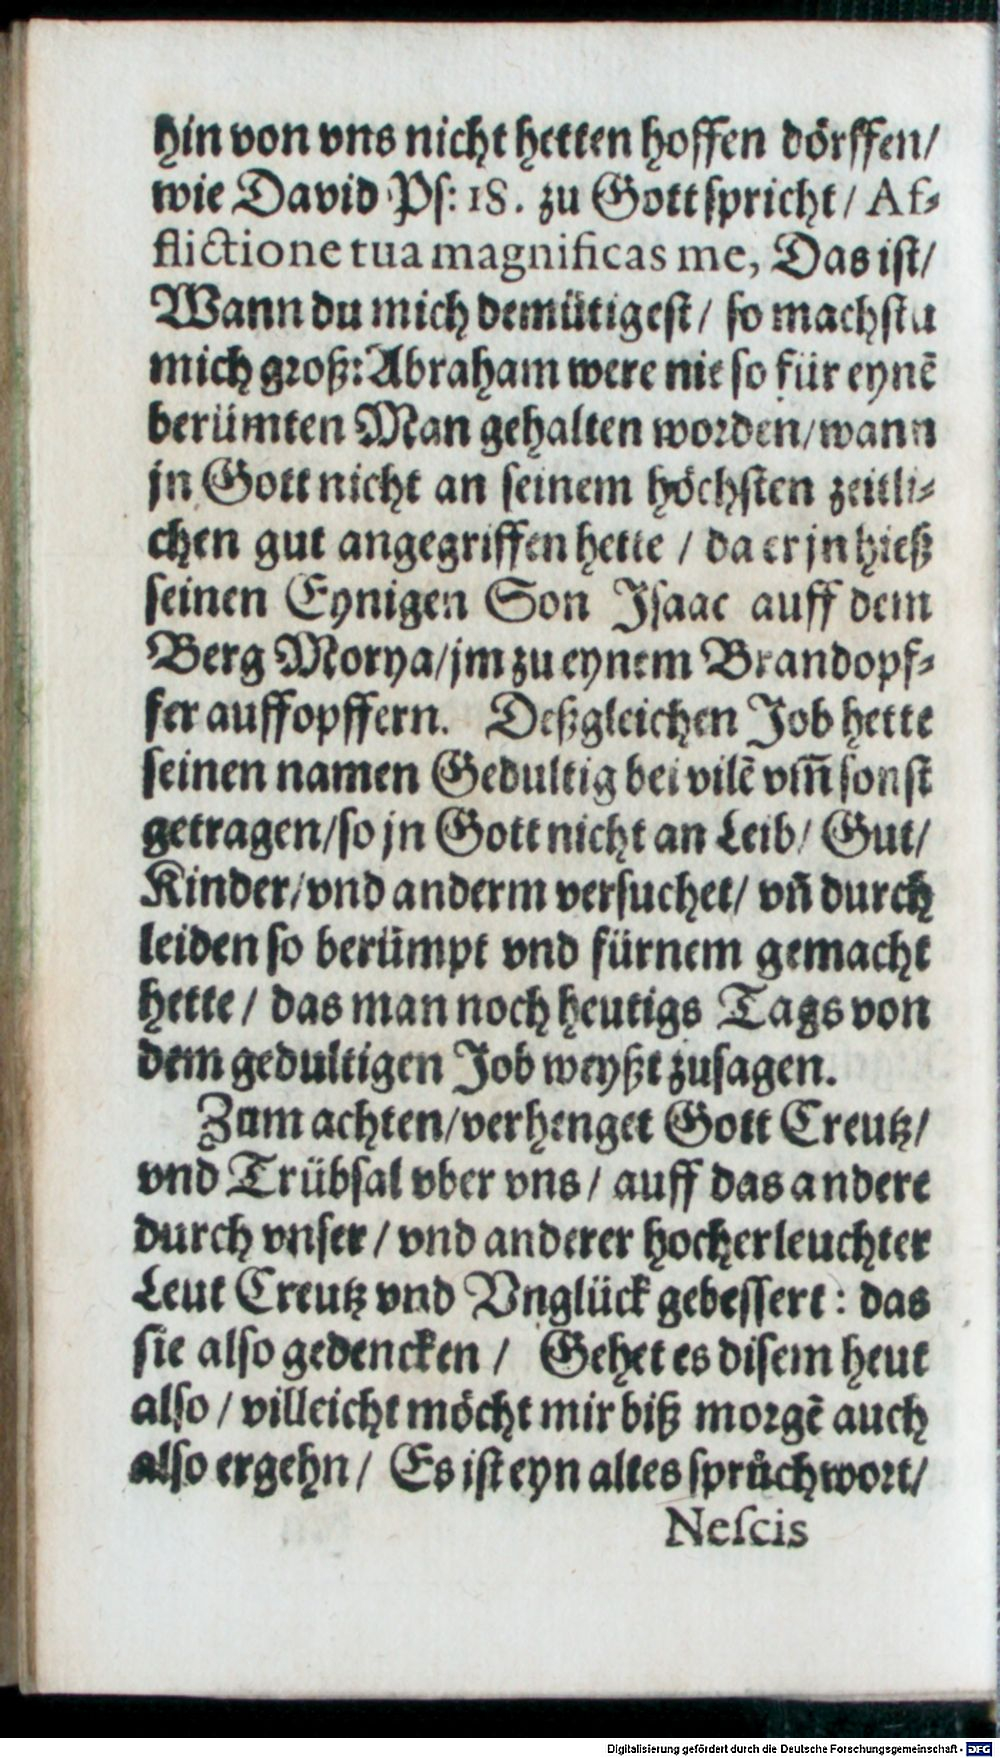 hin von vns nicht hetten hoffen dörffen/
wie David Ps: 18. zu Gott spricht/ Af-
flictione tua magnificas me, Das ist/
Wann du mich demütigest/ so machstu
mich groß: Abraham were nie so für eynē
berümten Man gehalten worden/wann
jn Gott nicht an seinem höchsten zeitli-
chen gut angegriffen hette / da er jn hieß
seinen Eynigen Son Isaac auff dem
Berg Morya/jm zu eynem Brandopf-
fer auffopffern. Deßgleichen Job hette
seinen namen Gedultig bei vilē vm̄ sonst
getragen/so jn Gott nicht an Leib/ Gut/
Kinder/vnd anderm versuchet/ vn̄ durch
leiden so berümpt vnd fürnem gemacht
hette/ das man noch heutigs Tags von
dem gedultigen Job weyßt zusagen.
Zum achten/verhenget Gott Creutz/
vnd Trübsal vber vns/ auff das andere
durch vnser/ vnd anderer hocherleuchter
Leut Creutz vnd Vnglück gebessert: das
sie also gedencken/ Gehet es disem heut
also/ villeicht möcht mir biß morgē auch
also ergehn/ Es ist eyn altes sprůchwort/
Nescis
Digitalisierung gefördert durch die Deutsche Forschungsgemeinschaft - DFG